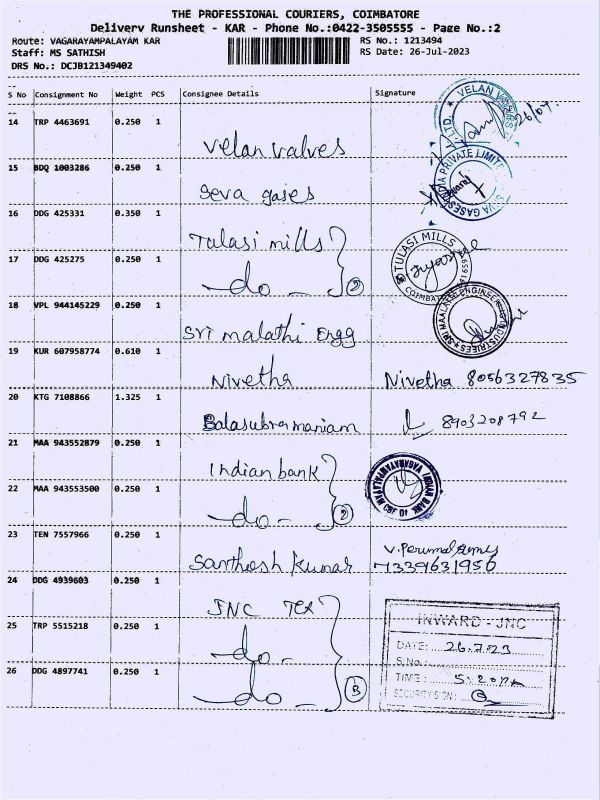 THE PROFESSIONAL COURIERS, COIMBATORE
Delivery Runsheet - KAR - Phone No.:0422-3505555 - Page No.:2
Route: VAGARAYAMPALAYAM KAR RS No.: 1213494
Staff: MS SATHISH RS Date: 26-Jul-2023
DRS No.: DCJB121349402
S No Consignment No Weight PCS Consignee Details Signature
14 TRP 4463691 0.250 1
Velan Valves VELAN VALVES LTD. 26/07
15 BDQ 1003286 0.250 1
Seva gases SEVA GASES INDIA PRIVATE LIMITED
16 DDG 425331 0.350 1
Tulasi mills TULASI MILLS COIMBATORE
17 DDG 425275 0.250 1
-do- 2
18 VPL 944145229 0.250 1
Sri malathi Engg
19 KUR 607958774 0.610 1
Nivetha Nivetha 8056327835
20 KTG 7108866 1.325 1
Balasubramaniam 8903208792
21 MAA 943552879 0.250 1
Indian bank INDIAN BANK
22 MAA 943553500 0.250 1
-do- 2
23 TEN 7557966 0.250 1
Santhosh kumar V. Perumal Samy
7339631956
24 DDG 4939603 0.250 1
JNC Tex INWARD - JNC
25 TRP 5515218 0.250 1
-do- DATE: 26.7.23
S.No.:
26 DDG 4897741 0.250 1
-do- 3 TIME: 5.20PM
SECURITY SIGN: